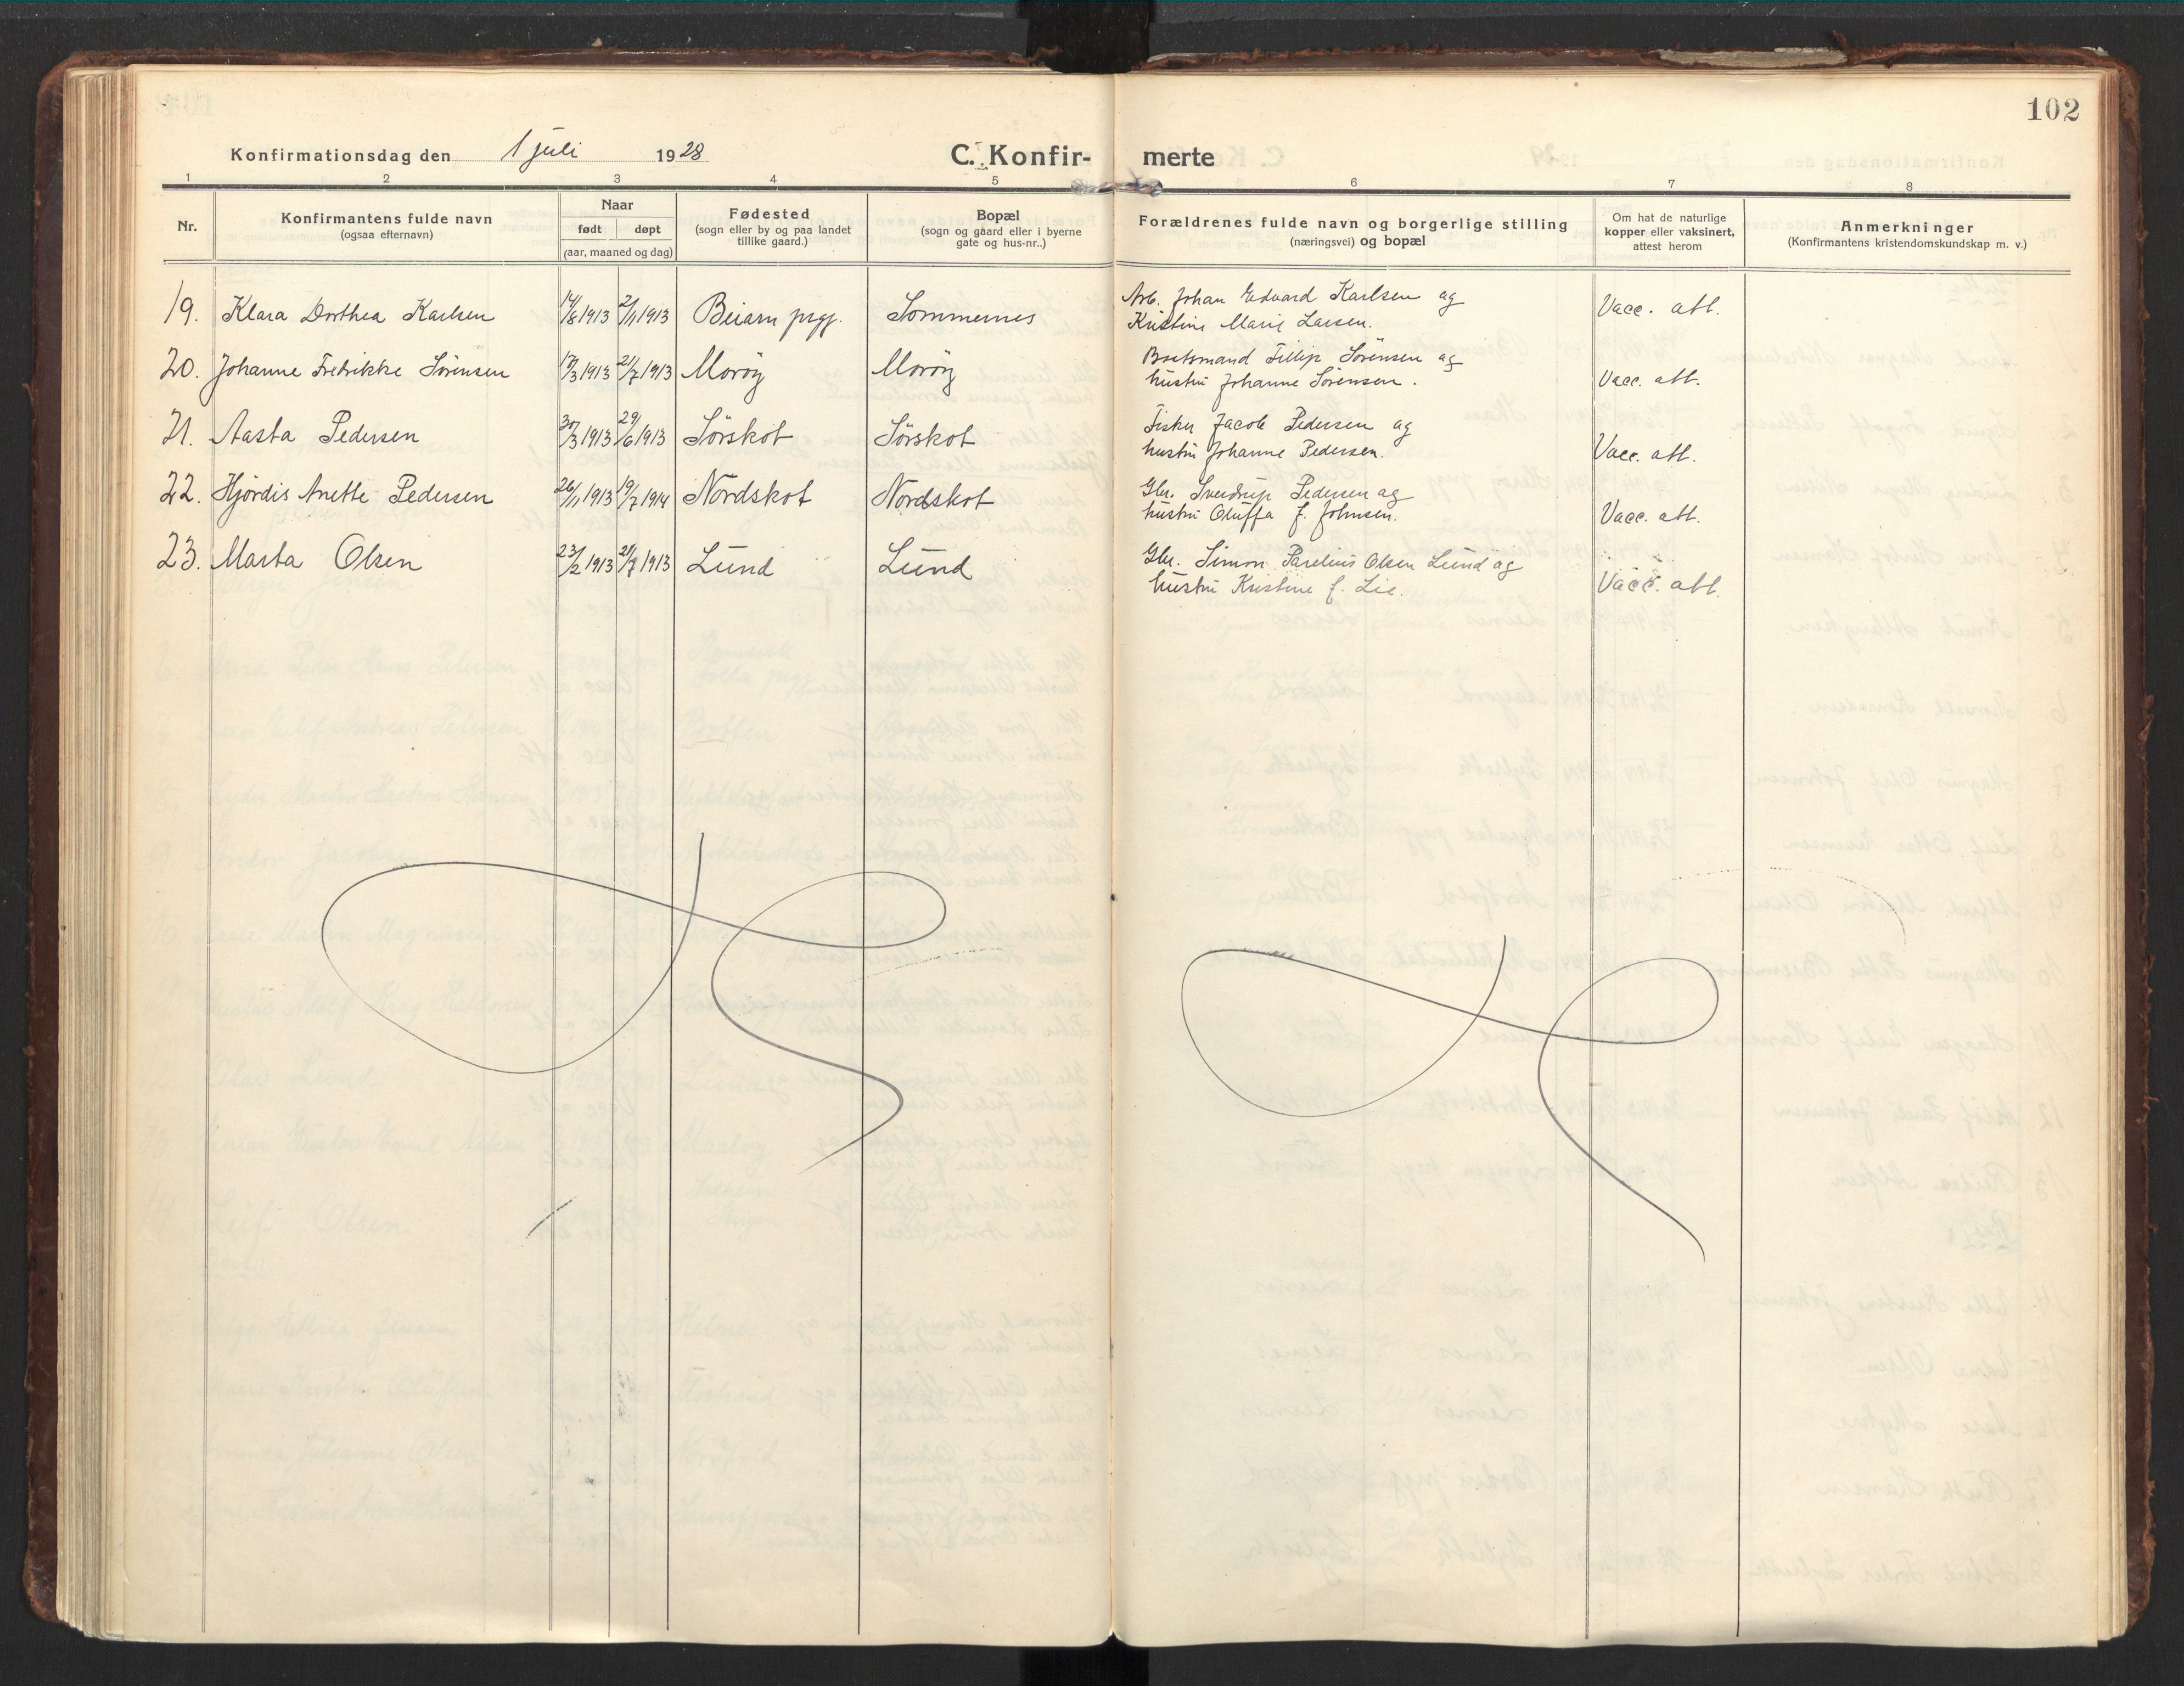 102
Konfirmationsdag den 1 juli 1928 C. Konfir- merte
1 2 3 4 5 6 7 8
Nr. Konfirmantens fulde navn (ogsaa efternavn) Naar født døpt (aar, maaned og dag) Fødested (sogn eller by og paa landet tillike gaard.) Bopæl (sogn og gaard eller i byerne gate og hus-nr..) Forældrenes fulde navn og borgerlige stilling (næringsvei) og bopæl Om hat de naturlige kopper eller vaksinert, attest herom Anmerkninger (Konfirmantens kristendomskundskap m. v.)
19. Klara Dorthea Karlsen 14/8 1913 2/11 1913 Beiarn prgj. Sommernes Arb. Johan Edvard Karlsen og
Kristine Marie Larsen. Vacc. att.
20. Johanne Fredrikke Sörensen 17/3 1913 21/7 1913 Moröy Moröy Baatsmand Fillip Sörensen og
hustru Johanne Sörensen. Vacc. att.
21. Aasta Pedersen 30/3 1913 29/6 1913 Sörskot Sörskot Fisker Jacob Pedersen og
hustru Johanne Pedersen. Vacc. att.
22. Hjördis Anette Pedersen 26/11 1913 19/7 1914 Nordskot Nordskot Gbr. Sverdrup Pedersen og
hustru Oluffa f. Johnsen. Vacc. att.
23. Marta Olsen 23/2 1913 21/7 1913 Lund Lund Gbr. Simon Parelius Olsen Lund og
hustru Kristine f. Lie. Vacc. att.